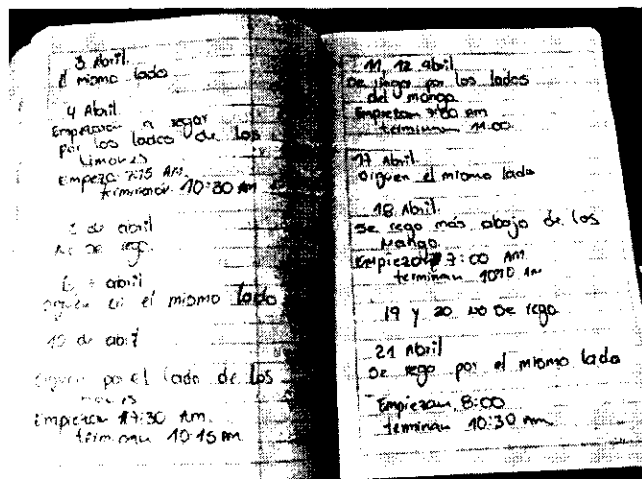 3 Abril.
el mismo lado
4 Abril
Empezaron a regar
por los lados de los
Limones
Empeza 7:15 AM.
terminaron 10:30 AM
de abril
No se rego.
abril
siguen en el mismo lado
10 de abril
siguen por el lado de los
Empiezan 7:30 Am.
terminan 10:15 am.
11, 12 Abril
Se riega por los lados
del mango
Empiezan 7:00 am
terminan 11:00
17 Abril
Siguen el mismo lado
18 Abril.
Se rego más abajo de los
Mango.
Empiezan 7:00 AM
terminan AM
19 y 20 no se rego
21 Abril
Se rego por el mismo lado
Empiezan 8:00
terminan 10:30 am.